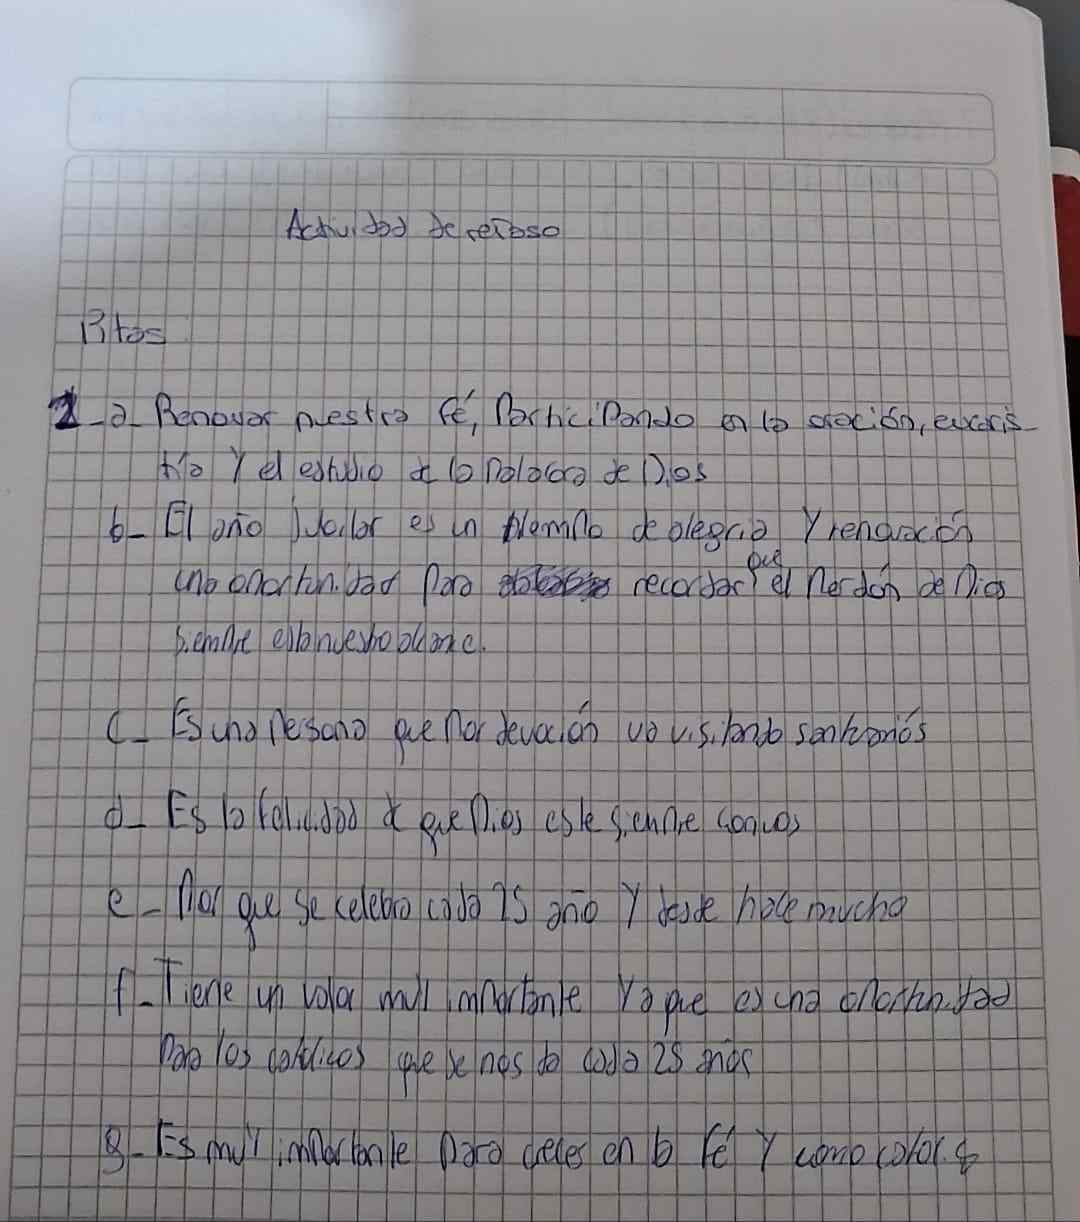 Actividad de repaso
Ritos
1-a- Renovar nuestra fé, Participando en la oración, eucaris-
tía Y el estudio de la Palabra de Dios
b- El año Jubilar es un tiempo de alegría Y renovación
una oportunidad Para recordar que el Perdón de Dios
siempre esta nuestro alcance.
c- Es una Persona que Por devoción va visitando santuarios
d- Es la felicidad de que Dios este siempre con vos
e- Por que se celebra cada 25 año Y desde hace mucho
f- Tiene un valor muy importante Ya que es una oportunidad
Para los católicos que se nos da cada 25 años
g- Es muy importante Para creces en la fé Y como